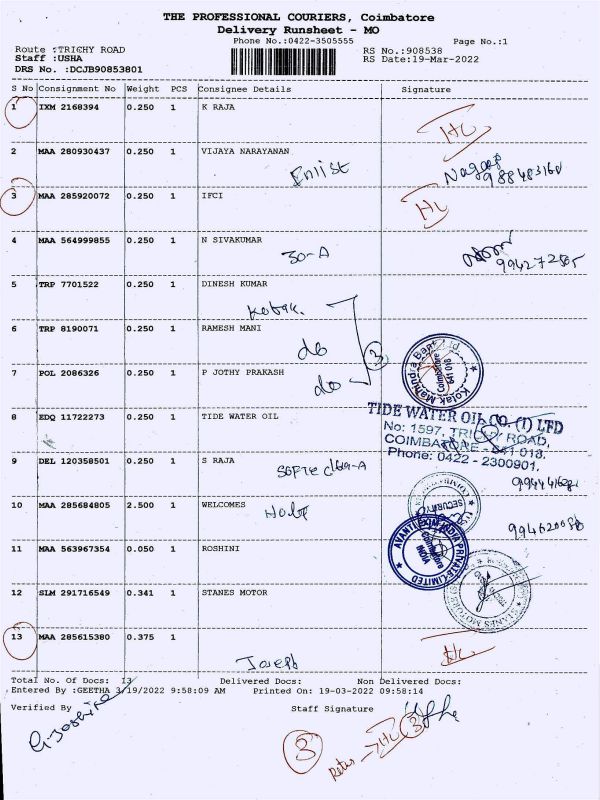 THE PROFESSIONAL COURIERS, Coimbatore
Delivery Runsheet - MO
Phone No.:0422-3505555
Page No.:1
Route :TRICHY ROAD
RS No.:908538
Staff :USHA
RS Date:19-Mar-2022
DRS No. :DCJB90853801
S No Consignment No Weight PCS Consignee Details Signature
1 IXM 2168394 0.250 1 K RAJA
2 MAA 280930437 0.250 1 VIJAYA NARAYANAN
3 MAA 285920072 0.250 1 IFCI
4 MAA 564999855 0.250 1 N SIVAKUMAR
30-A
5 TRP 7701522 0.250 1 DINESH KUMAR
Kotak.
6 TRP 8190071 0.250 1 RAMESH MANI
do
3
7 POL 2086326 0.250 1 P JOTHY PRAKASH
do
Kotak Mahindra Bank Ltd
Coimbatore
641 018
8 EDQ 11722273 0.250 1 TIDE WATER OIL
TIDE WATER OIL CO. (I) LTD
No: 1597, TRICHY ROAD,
COIMBATORE - 641 018.
Phone: 0422 - 2300901.
9 DEL 120358501 0.250 1 S RAJA
10 MAA 285684805 2.500 1 WELCOMES
SECURITY
11 MAA 563967354 0.050 1 ROSHINI
PRIVATE LIMITED
Coimbatore
INDIA
12 SLM 291716549 0.341 1 STANES MOTOR
STANES MOTOR
13 MAA 285615380 0.375 1
Joseph
Total No. Of Docs: 13 Delivered Docs: Non Delivered Docs:
Entered By :GEETHA 3/19/2022 9:58:09 AM Printed On: 19-03-2022 09:58:14
Verified By Staff Signature
3
3